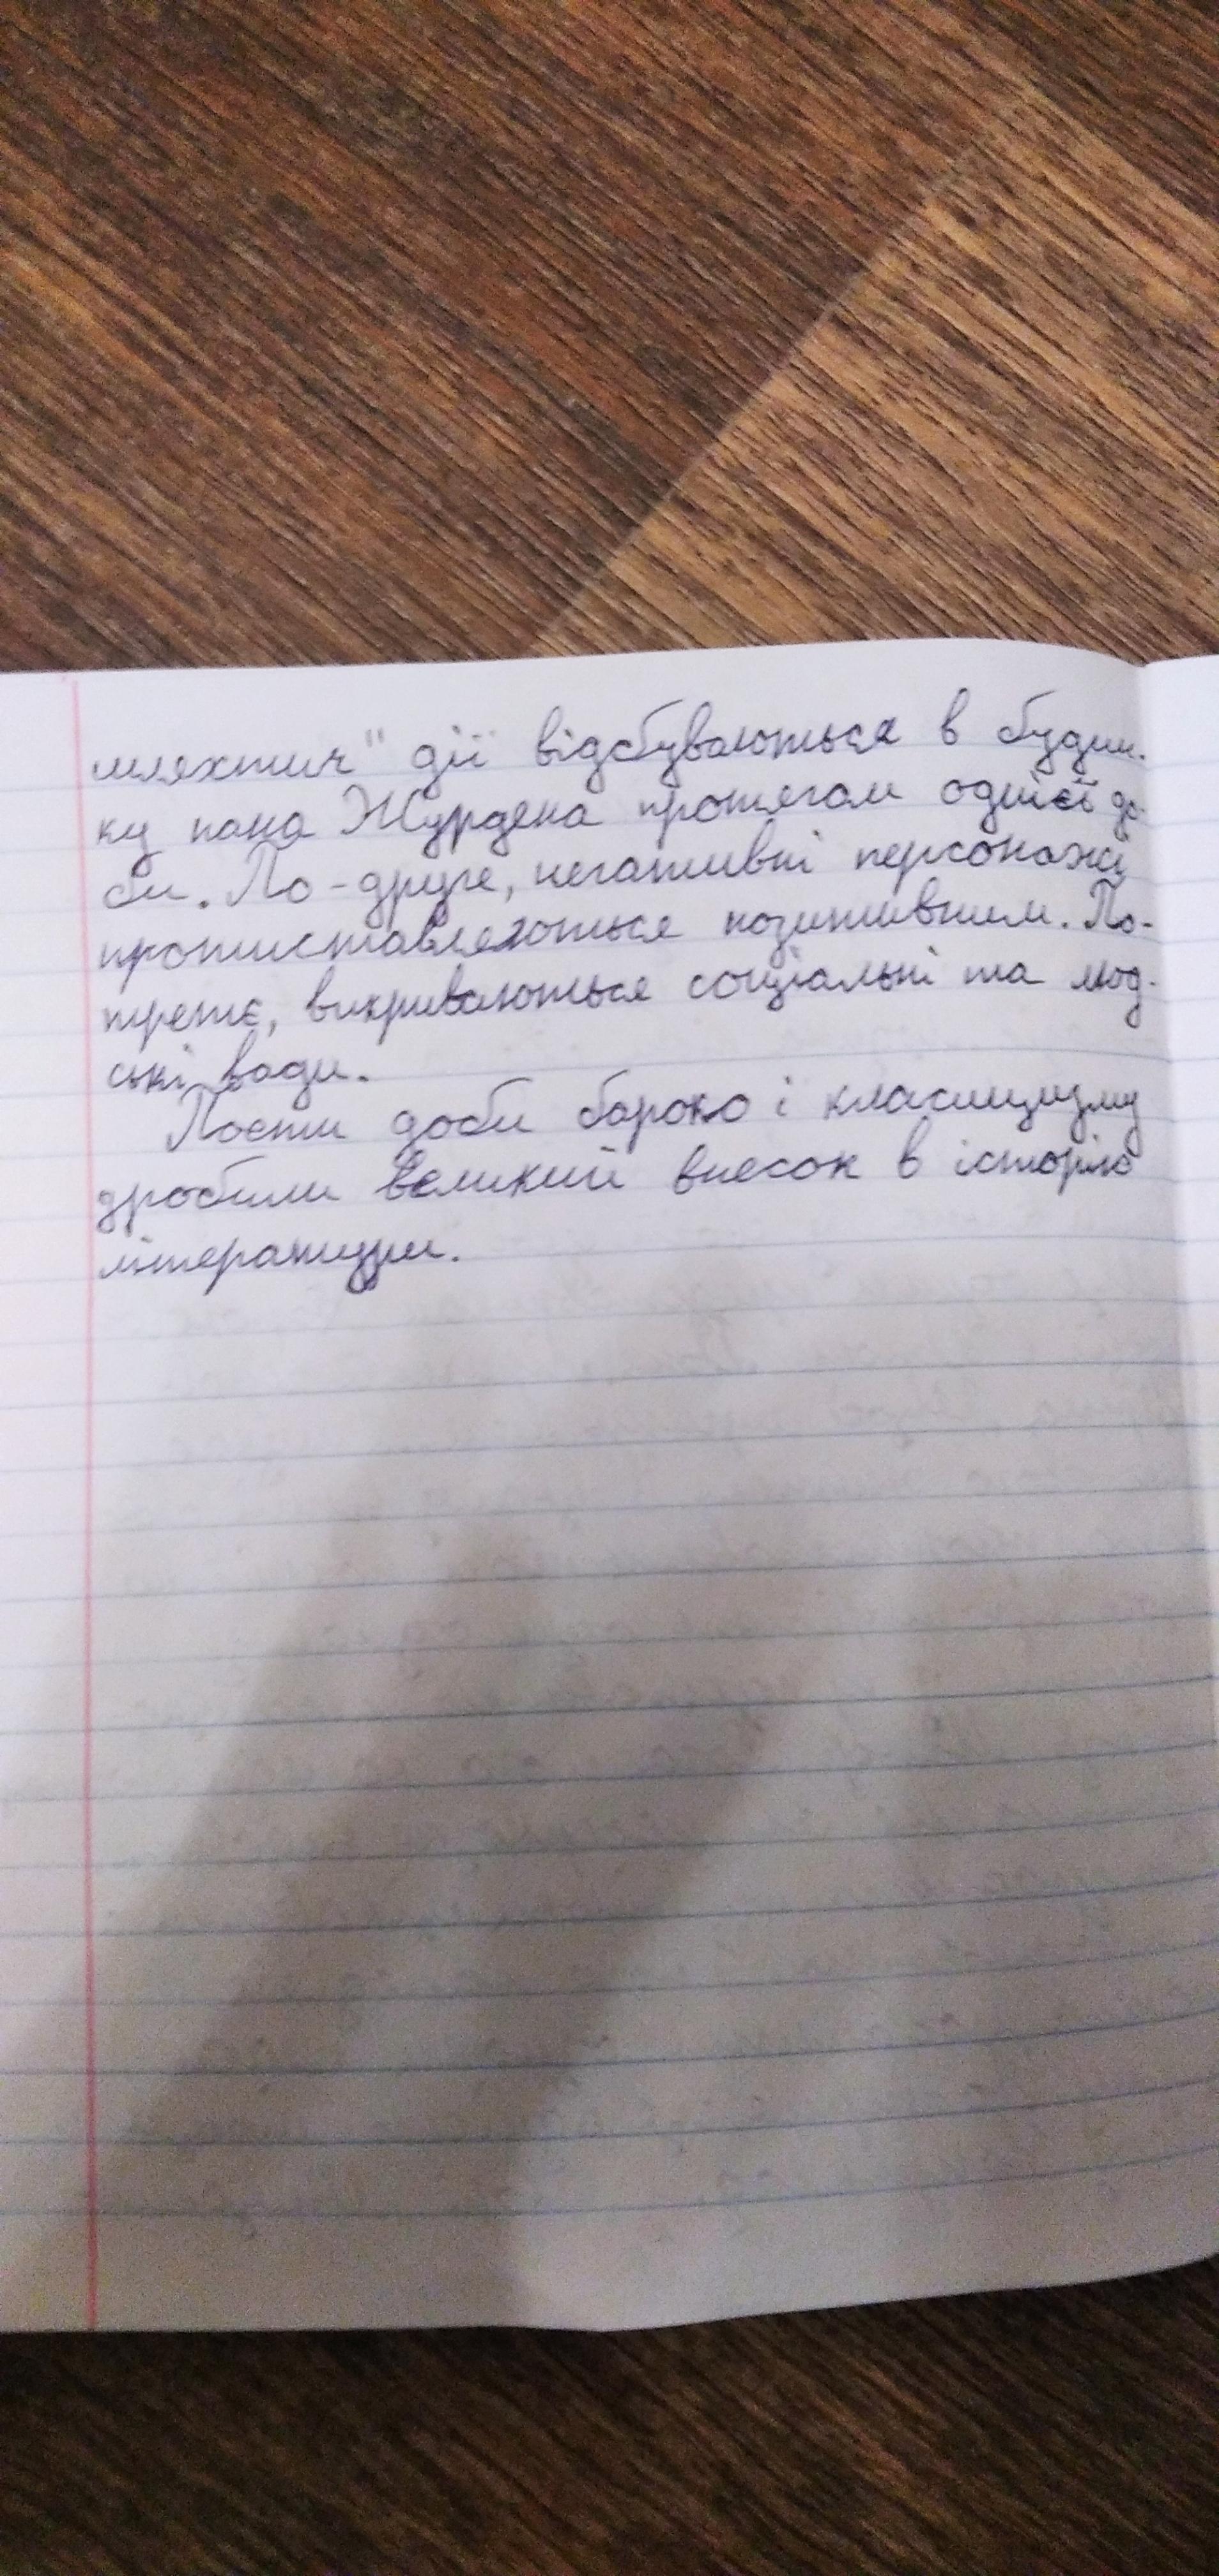 шляхтич" дії відбуваються в будин-
ку пана Журдена протягом однієї до-
би. По-друге, негативні персонажі
протиставляються позитивним. По-
третє, викриваються соціальні та люд-
ські вади.
Поети доби бароко і класицизму
зробили великий внесок в історію
літератури.